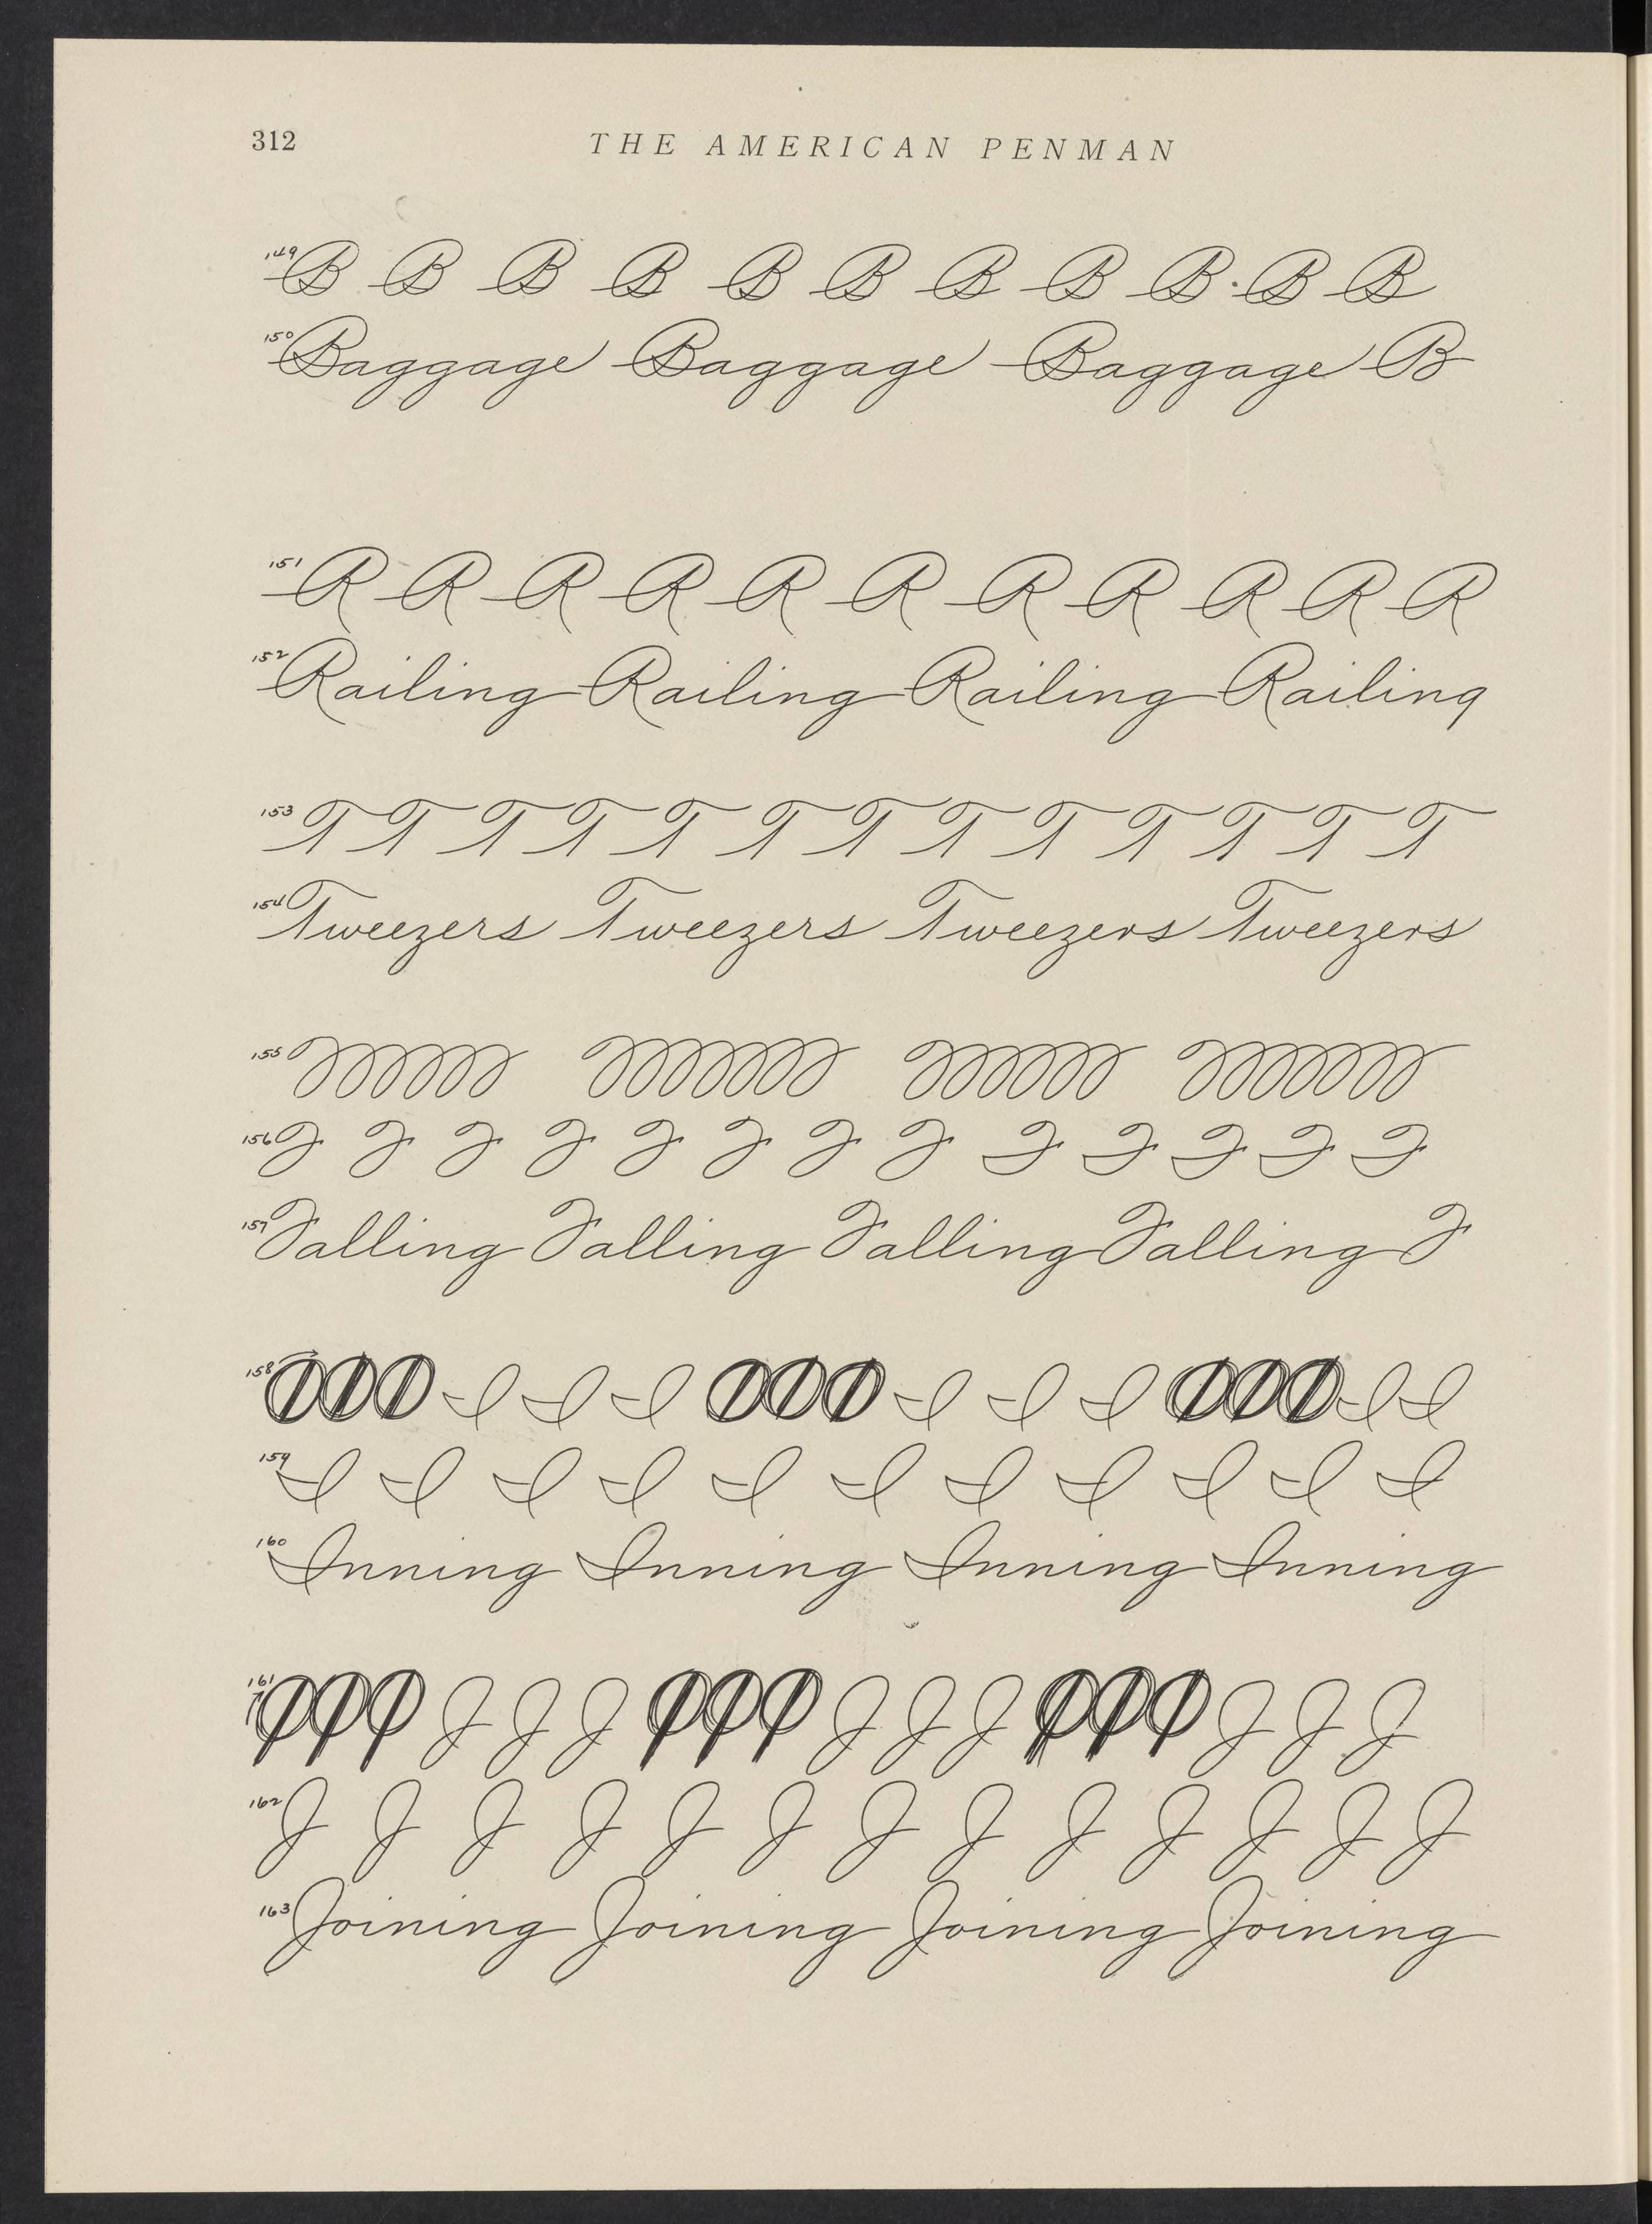 312 THE AMERICAN PENMAN
149 B B B B B B B B B B B
150 Baggage Baggage Baggage B
151 R R R R R R R R R R R
152 Railing Railing Railing Railing
153 T T T T T T T T T T T T T
154 Tweezers Tweezers Tweezers Tweezers
155
156 F F F F F F F F F F F F F
157 Falling Falling Falling Falling F
158 I I I I I I I I
159 I I I I I I I I I I I
160 Inning Inning Inning Inning
161 J J J J J J J J J
162 J J J J J J J J J J J J J
163 Joining Joining Joining Joining